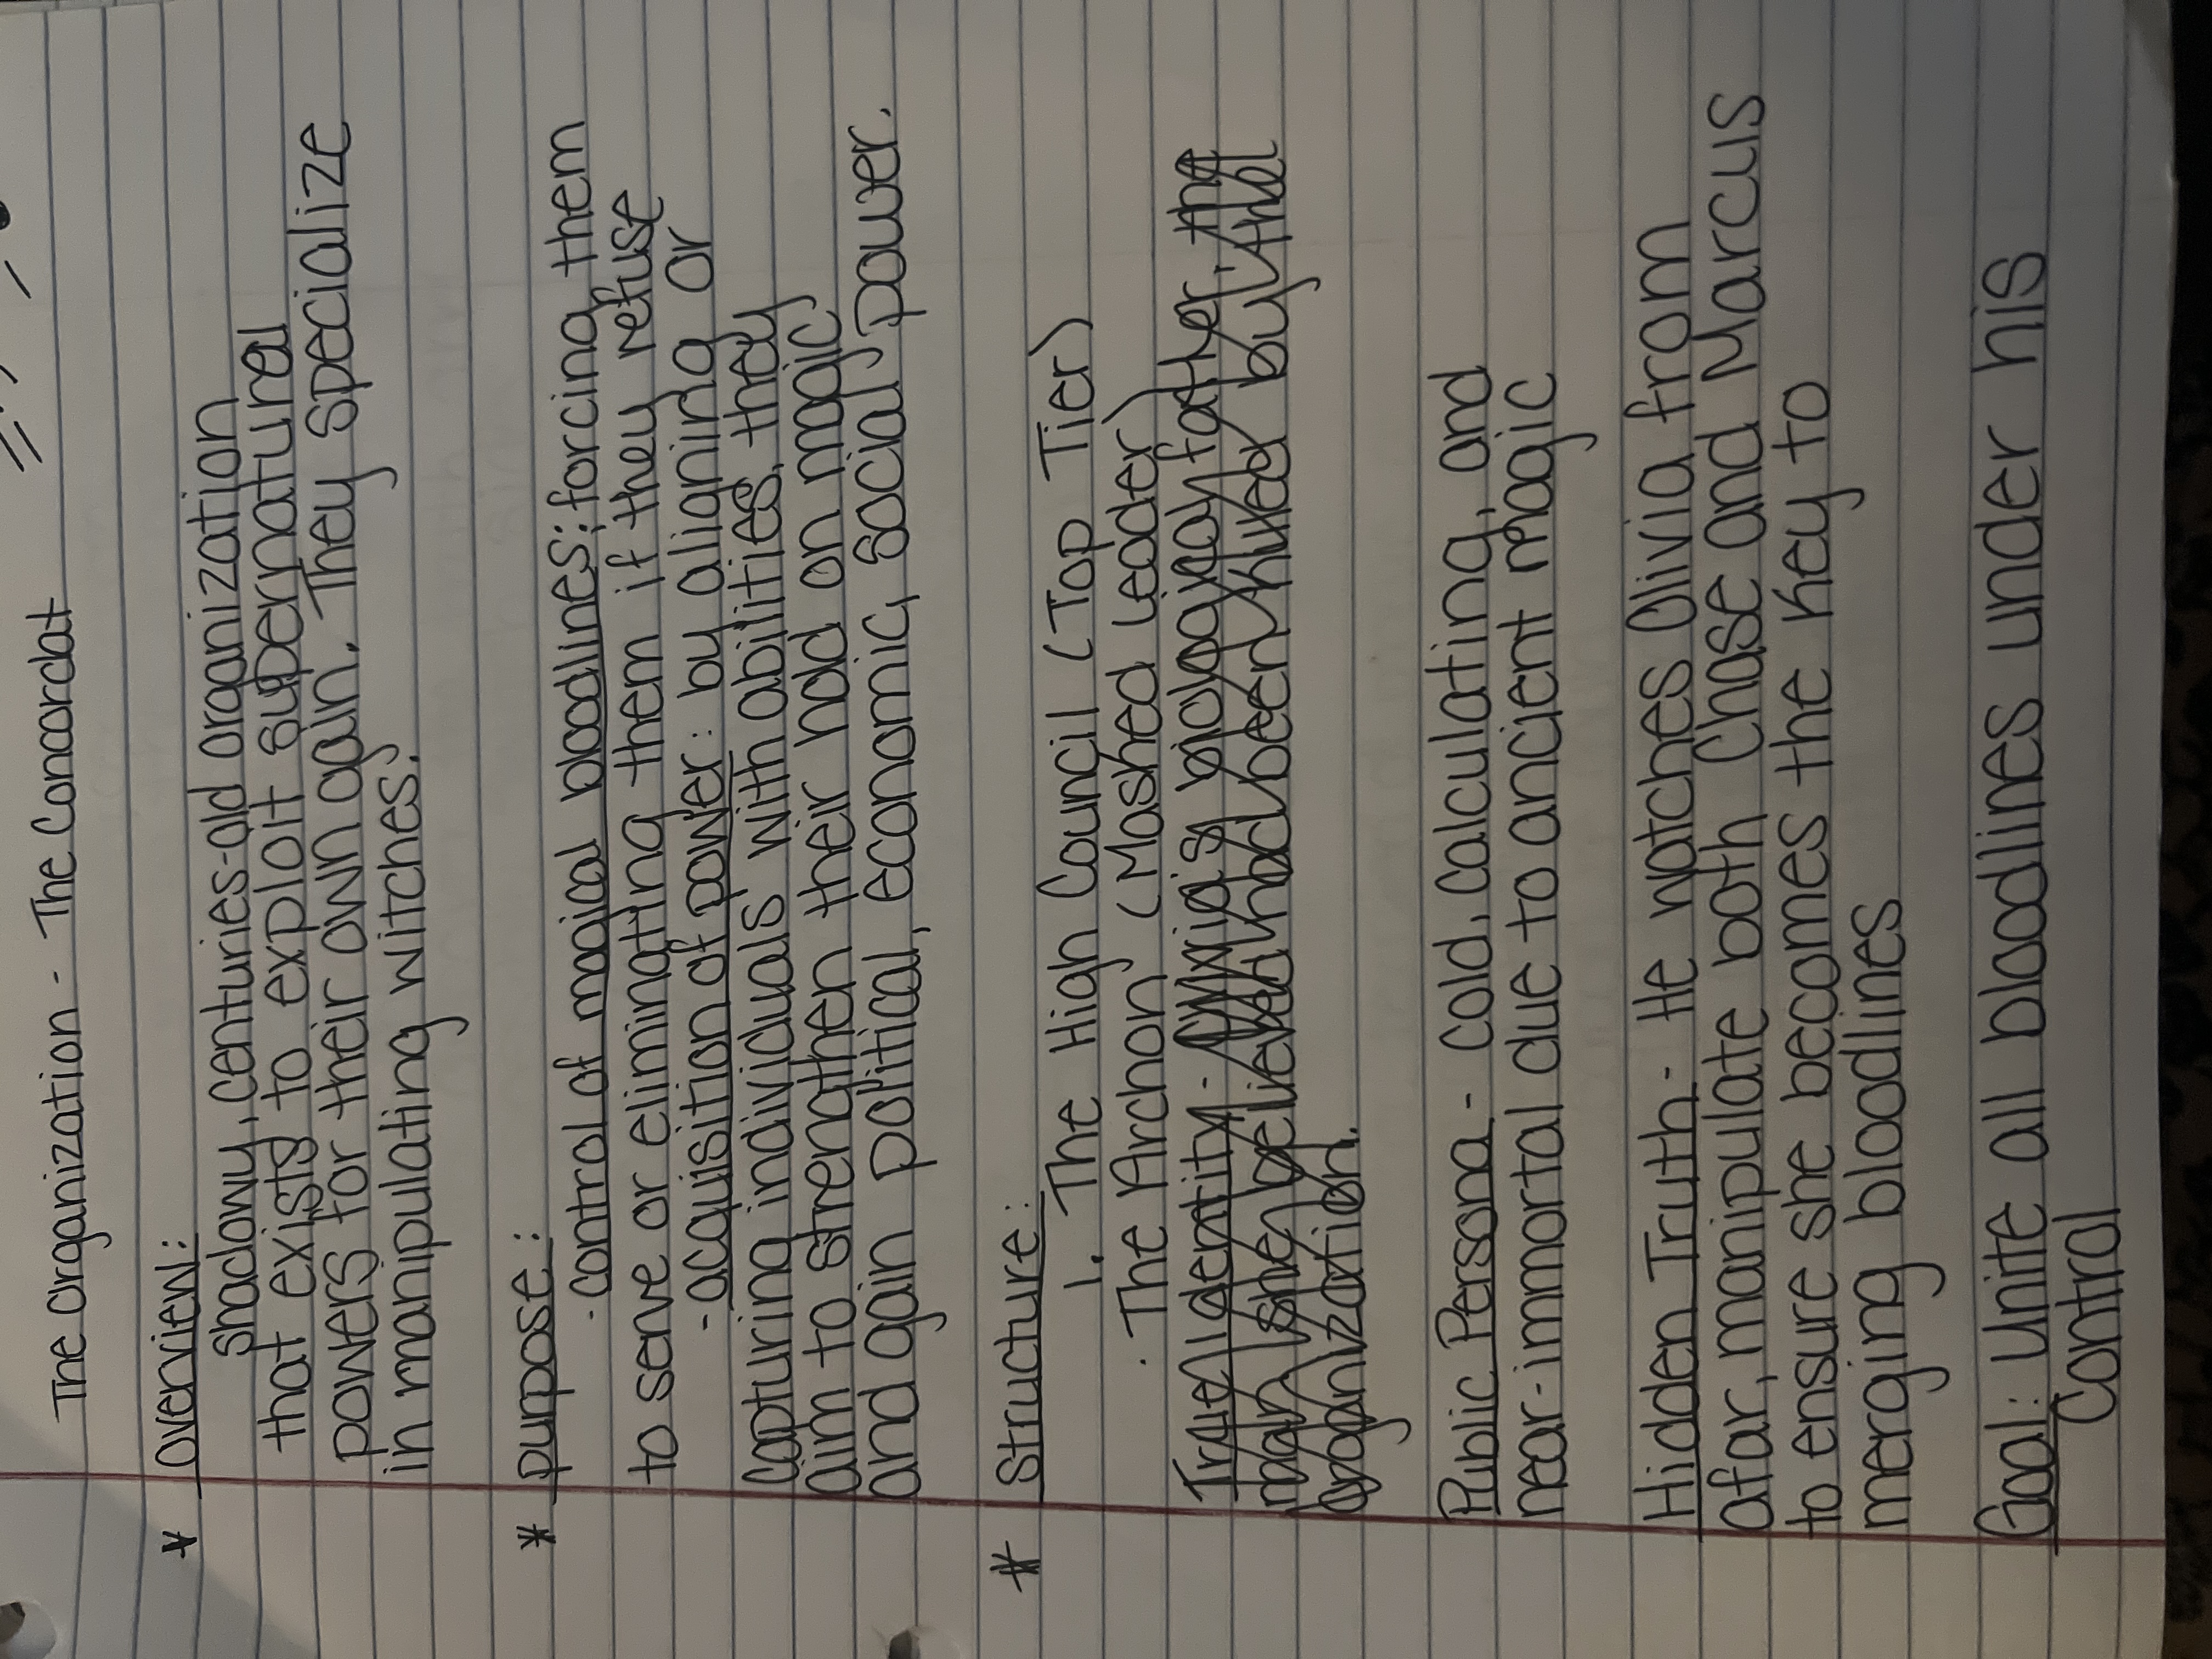 The Organization - The Concordat
* overview:
shadowy, centuries-old organization
that exists to exploit supernatural
powers for their own gain. They specialize
in manipulating witches.
* purpose:
- control of magical bloodlines: forcing them
to serve or eliminating them if they refuse
- acquisition of power: by aligning or
capturing individuals with abilities, they
aim to strengthen their hold on magic
and gain political, economic, social power.
* Structure:
1. The High Council (Top Tier)
· The Archon (Masked Leader)
True Identity - Olivia's biological father, the
man she believed had been killed by the
organization.
Public Persona - cold, calculating, and
near-immortal due to ancient magic
Hidden Truth - He watches Olivia from
afar, manipulate both Chase and Marcus
to ensure she becomes the key to
merging bloodlines
Goal: Unite all bloodlines under his
Control